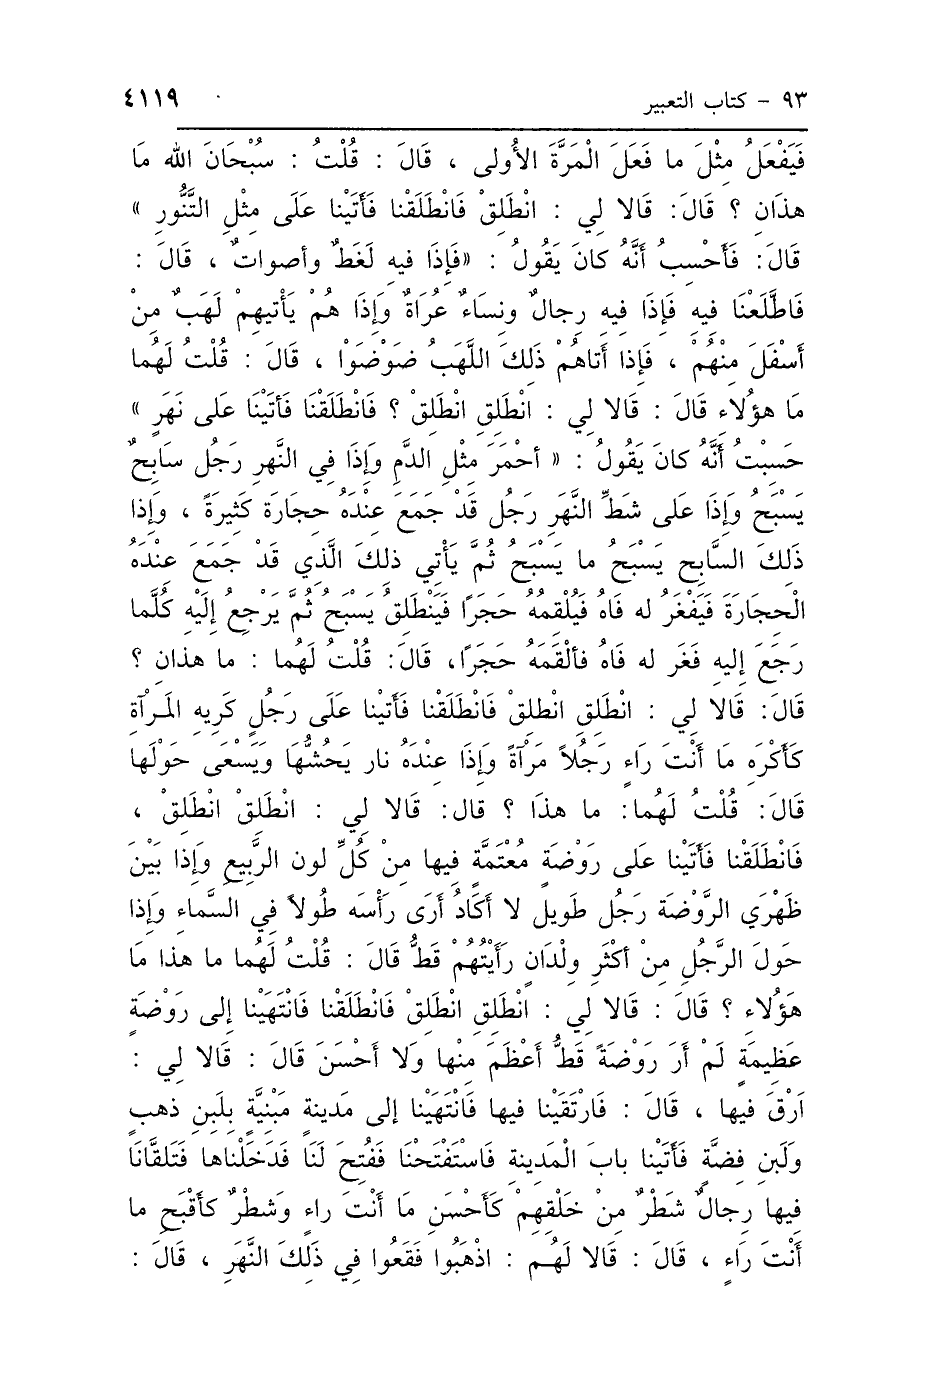 ٩٣ - كتاب التعبير ٤١١٩
فَيَفْعَلُ مِثْلَ ما فَعَلَ الْمَرَّةَ الأُولى ، قَالَ : قُلْتُ : سُبْحَانَ الله مَا
هذَانِ ؟ قَالَ: قَالا لِي : انْطَلِقْ فَانْطَلَقْنا فَأَتَيْنا عَلَى مِثْلِ التَّنُّورِ »
قَالَ: فَأَحْسِبُ أَنَّهُ كانَ يَقُولُ : «فَإِذَا فِيهِ لَغَطٌ وأصواتٌ ، قَالَ :
فَاطَّلَعْنَا فِيهِ فَإِذَا فِيهِ رِجالٌ ونِسَاءٌ عُرَاةٌ وَإِذَا هُمْ يَأْتِيهِمْ لَهَبٌ مِنْ
أَسْفَلَ مِنْهُمْ ، فَإِذا أَتاهُمْ ذَلِكَ اللَّهَبُ ضَوْضَوْا ، قَالَ : قُلْتُ لَهُما
مَا هؤُلاءِ قَالَ : قَالا لِي : انْطَلِقِ انْطَلِقْ ؟ فَانْطَلَقْنَا فَأَتَيْنَا عَلى نَهَرٍ »
حَسِبْتُ أَنَّهُ كانَ يَقُولُ : « أحْمَرَ مِثْلِ الدَّمِ وَإِذَا فِي النَّهرِ رَجُل سابِحٌ
يَسْبَحُ وَإِذَا عَلى شَطِّ النَّهَرِ رَجُل قَدْ جَمَعَ عِنْدَهُ حِجَارَة كَثِيرَةً ، وَإِذا
ذَلِكَ السَّابِح يَسْبَحُ ما يَسْبَحُ ثُمَّ يَأْتِي ذلِكَ الَّذِي قَدْ جَمَعَ عِنْدَهُ
الْحِجَارَةَ فَيَفْغَرُ له فَاهُ فَيُلْقِمُهُ حَجَرًا فَيَنْطَلِقُ يَسْبَحُ ثُمَّ يَرْجِعُ إِلَيْهِ كُلَّما
رَجَعَ إِليهِ فَغَر له فَاهُ فألْقَمَهُ حَجَرًا، قَالَ: قُلْتُ لَهُما : ما هذانِ ؟
قَالَ: قَالا لِي : انْطَلِقِ انْطلِقْ فَانْطَلَقْنا فَأَتَيْنا عَلَى رَجُلٍ كَرِيهِ المَرآةِ
كَأَكْرَهِ مَا أَنْتَ رَاءٍ رَجُلاً مَرْآةً وَإِذَا عِنْدَهُ نار يَحُشُّهَا وَيَسْعَى حَوْلَها
قَالَ: قُلْتُ لَهُما: ما هذَا ؟ قال: قَالا لِي : انْطَلِقْ انْطَلِقْ ،
فَانْطَلَقْنا فَأَتَيْنا عَلى رَوْضَةٍ مُعْتَمَّةٍ فِيها مِنْ كُلِّ لون الرَّبِيعِ وَإِذا بَيْنَ
ظَهْرَيِ الرَّوْضَةِ رَجُل طَوِيل لا أَكَادُ أَرَى رَأْسَه طُولاً فِي السَّماءِ وَإِذا
حَولَ الرَّجُلِ مِنْ أكْثَرِ وِلْدَانٍ رَأَيْتُهُمْ قَطُّ قَالَ : قُلْتُ لَهُما ما هذا مَا
هَؤُلاءِ ؟ قَالَ : قَالا لِي : انْطَلِقِ انْطَلِقْ فَانْطَلَقْنا فَانْتَهَيْنا إلى رَوْضَةٍ
عَظِيمَةٍ لَمْ أَرَ رَوْضَةً قَطُّ أَعْظَمَ مِنْها وَلا أَحْسَنَ قَالَ : قَالا لِي :
اَرْقَ فِيها ، قَالَ : فَارْتَقَيْنا فِيها فَانْتَهَيْنا إِلى مَدِينةٍ مَبْنِيَّةٍ بِلَبِنِ ذهبٍ
وَلَبِنِ فِضَّةٍ فَأَتَيْنا بابَ الْمَدِينةِ فَاستَفْتَحْنَا فَفُتِحَ لَنَا فَدَخَلْناها فَتَلَقَّانَا
فِيها رِجالٌ شَطْرٌ مِنْ خَلْقِهِمْ كَأَحْسَنِ مَا أَنْتَ راءٍ وَشطْرٌ كأَقْبَحِ ما
أَنْتَ رَاءٍ ، قَالَ : قَالا لَهُم : اذْهَبُوا فَقَعُوا فِي ذَلِكَ النَّهَرِ ، قَالَ :